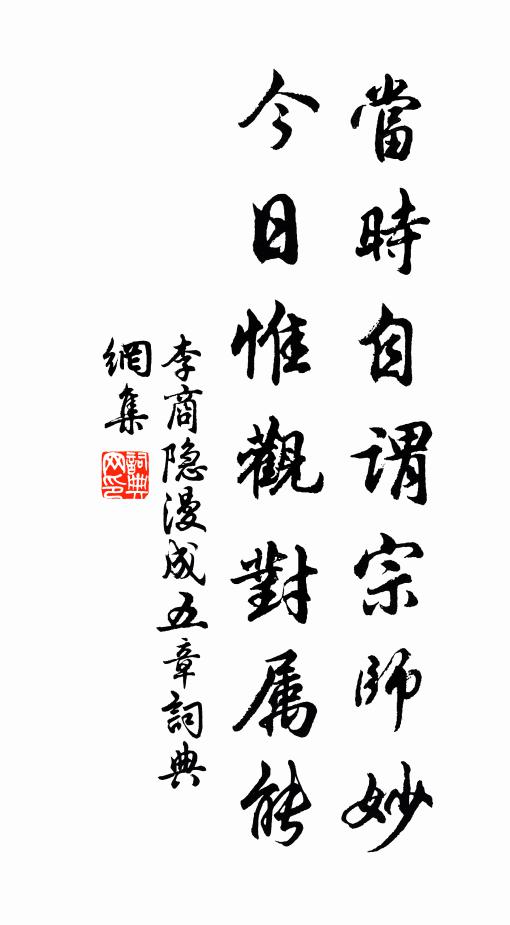 當時自謂宗師妙
今日惟觀對属能
李商隐漫成五章詞典
網集
詞典
网印